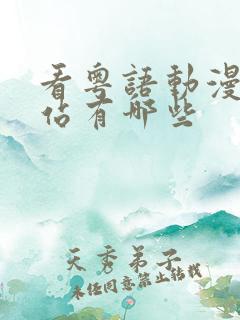 看粵語動漫
站有哪些
天秀弟子
未经同意禁止转载